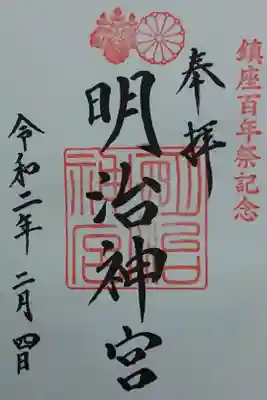 鎮座百年祭記念
奉拝
明治神宮
明治神宮
令和二年二月四日